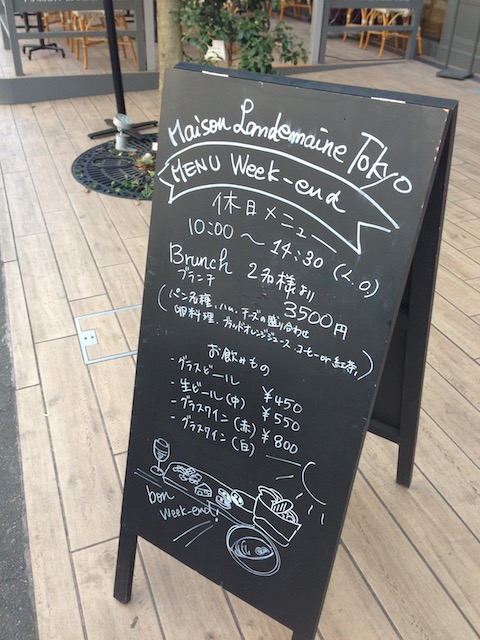 Maison Landemaine Tokyo
MENU Week-end
休日メニュー
10:00〜14:30 (L.O)
Brunch 2名様より
ブランチ 3500円
(パン各種、ハム、チーズの盛り合わせ
卵料理、ブラッドオレンジジュース、コーヒーor紅茶、)
お飲みもの
・グラスビール ¥450
・生ビール(中) ¥550
・グラスワイン(赤) ¥800
・グラスワイン(白)
bon
week-end!